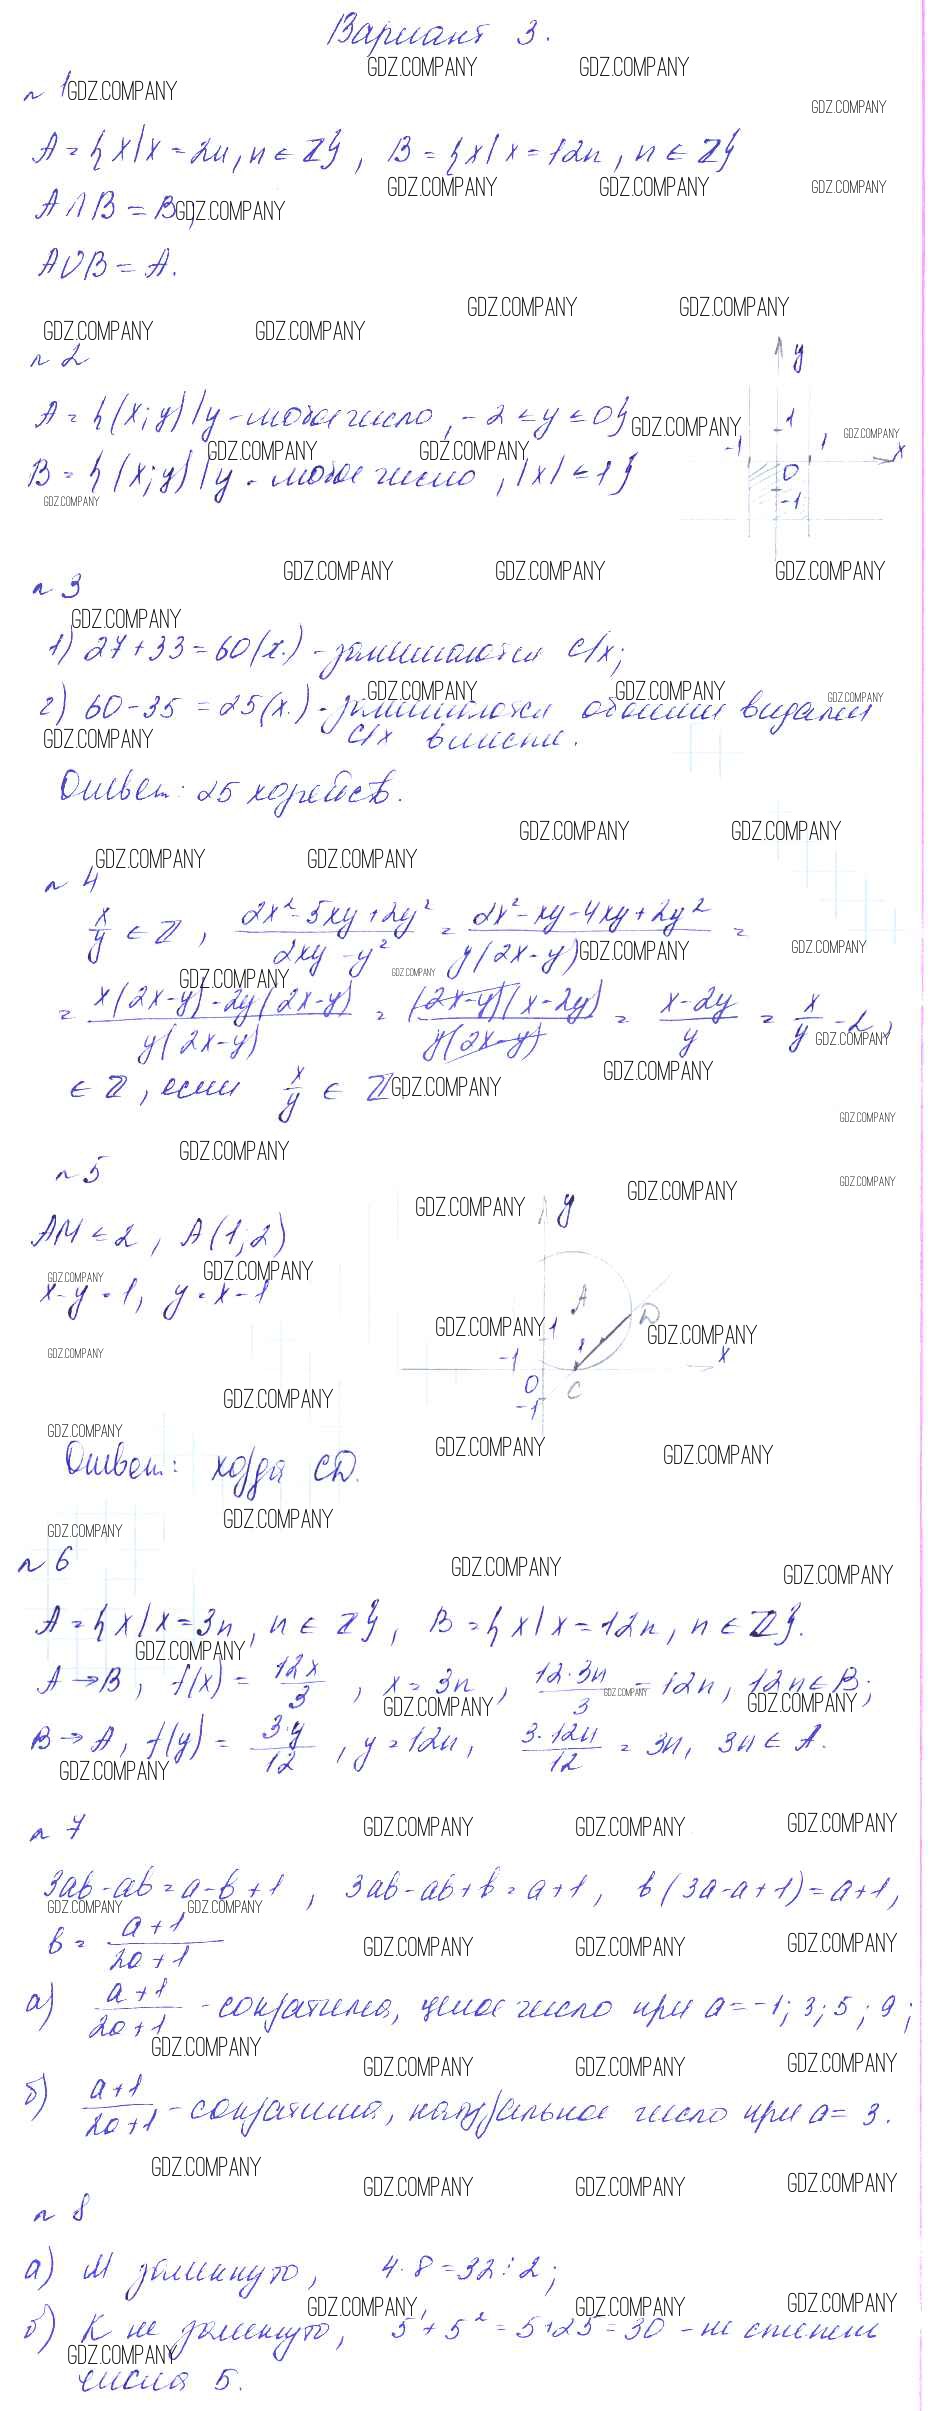 Вариант 3.
GDZ.COMPANY GDZ.COMPANY
№ 1 GDZ.COMPANY
GDZ.COMPANY
A = {x | x = 2n, n ∈ Z}, B = {x | x = 12n, n ∈ Z}
GDZ.COMPANY GDZ.COMPANY GDZ.COMPANY
A ∩ B = B, GDZ.COMPANY
A ∪ B = A.
GDZ.COMPANY GDZ.COMPANY
GDZ.COMPANY GDZ.COMPANY
№ 2
y
A = {(x; y) | y - любое число, -2 ≤ y ≤ 0} GDZ.COMPANY
1
-1 1 GDZ.COMPANY x
GDZ.COMPANY GDZ.COMPANY
B = {(x; y) | y - любое число, |x| ≤ 1}
0
-1
GDZ.COMPANY
GDZ.COMPANY GDZ.COMPANY GDZ.COMPANY
№ 3
GDZ.COMPANY
1) 27 + 33 = 60 (х.) - занимаются с/х;
GDZ.COMPANY GDZ.COMPANY GDZ.COMPANY
2) 60 - 35 = 25 (х.) - занимаются обоими видами
GDZ.COMPANY с/х вместе.
Ответ: 25 хозяйств.
GDZ.COMPANY GDZ.COMPANY
GDZ.COMPANY GDZ.COMPANY
№ 4
x/y ∈ Z, (2x² - 5xy + 2y²)/(2xy - y²) = (2x² - xy - 4xy + 2y²)/(y(2x - y)) =
GDZ.COMPANY GDZ.COMPANY
GDZ.COMPANY GDZ.COMPANY
= (x(2x - y) - 2y(2x - y))/(y(2x - y)) = ((2x - y)(x - 2y))/(y(2x - y)) = (x - 2y)/y = x/y - 2,
GDZ.COMPANY
∈ Z, если x/y ∈ Z GDZ.COMPANY GDZ.COMPANY
GDZ.COMPANY
GDZ.COMPANY
№ 5
GDZ.COMPANY GDZ.COMPANY GDZ.COMPANY
y
AM ≤ 2, A(1; 2)
GDZ.COMPANY GDZ.COMPANY
x - y = 1, y = x - 1
A
D
GDZ.COMPANY 1 GDZ.COMPANY
GDZ.COMPANY
-1 x
0 C
-1
GDZ.COMPANY
GDZ.COMPANY
GDZ.COMPANY GDZ.COMPANY
Ответ: хорда CD.
GDZ.COMPANY GDZ.COMPANY
№ 6
GDZ.COMPANY GDZ.COMPANY
A = {x | x = 3n, n ∈ Z}, B = {x | x = 12n, n ∈ Z}.
GDZ.COMPANY
A → B, f(x) = 12x/3, x = 3n, 12·3n/3 = 12n, 12n ∈ B;
GDZ.COMPANY GDZ.COMPANY GDZ.COMPANY
B → A, f(y) = 3·y/12, y = 12n, 3·12n/12 = 3n, 3n ∈ A.
GDZ.COMPANY
№ 7
GDZ.COMPANY GDZ.COMPANY GDZ.COMPANY
3ab - ab = a - b + 1, 3ab - ab + b = a + 1, b(3a - a + 1) = a + 1,
GDZ.COMPANY GDZ.COMPANY
b = (a + 1)/(2a + 1)
GDZ.COMPANY GDZ.COMPANY GDZ.COMPANY
а) (a + 1)/(2a + 1) - сократима, целое число при a = -1; 3; 5; 9;
GDZ.COMPANY
GDZ.COMPANY GDZ.COMPANY GDZ.COMPANY
б) (a + 1)/(2a + 1) - сократима, натуральное число при a = 3.
GDZ.COMPANY
GDZ.COMPANY GDZ.COMPANY GDZ.COMPANY
№ 8
а) M замкнуто, 4·8 = 32 ⋮ 2;
GDZ.COMPANY GDZ.COMPANY GDZ.COMPANY
б) K не замкнуто, 5 + 5² = 5 + 25 = 30 - не степень
GDZ.COMPANY
числа 5.